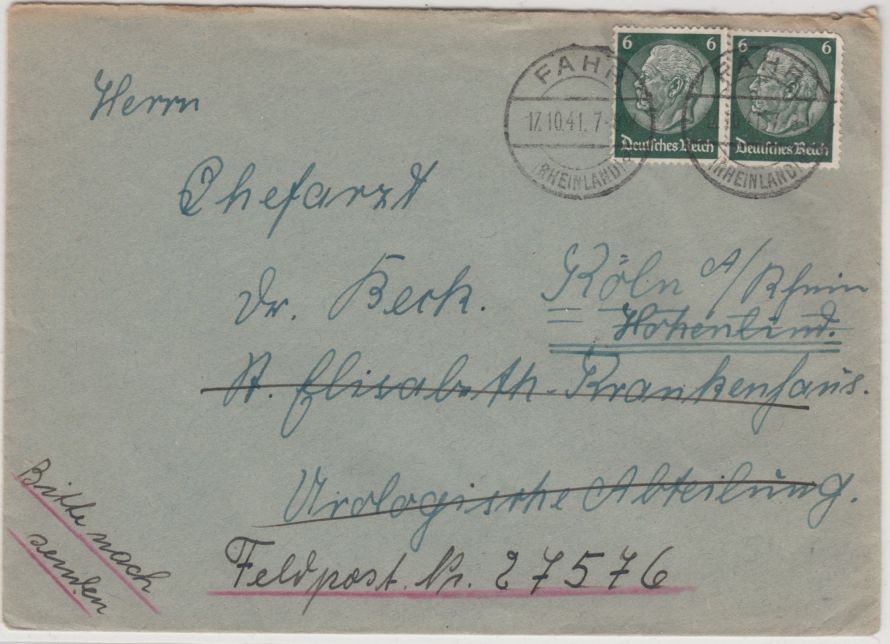 6 6 6 6
Deutsches Reich Deutsches Reich
FAHR FAHR
17.10.41.7-
(RHEINLAND) (RHEINLAND)
Herrn
Chefarzt
Dr. Beck. Köln A/Rhein
Hohenlind.
St. Elisabeth. Krankenhaus.
Urologische Abteilung.
Feldpost. Nr. 27576
Bitte nach
senden